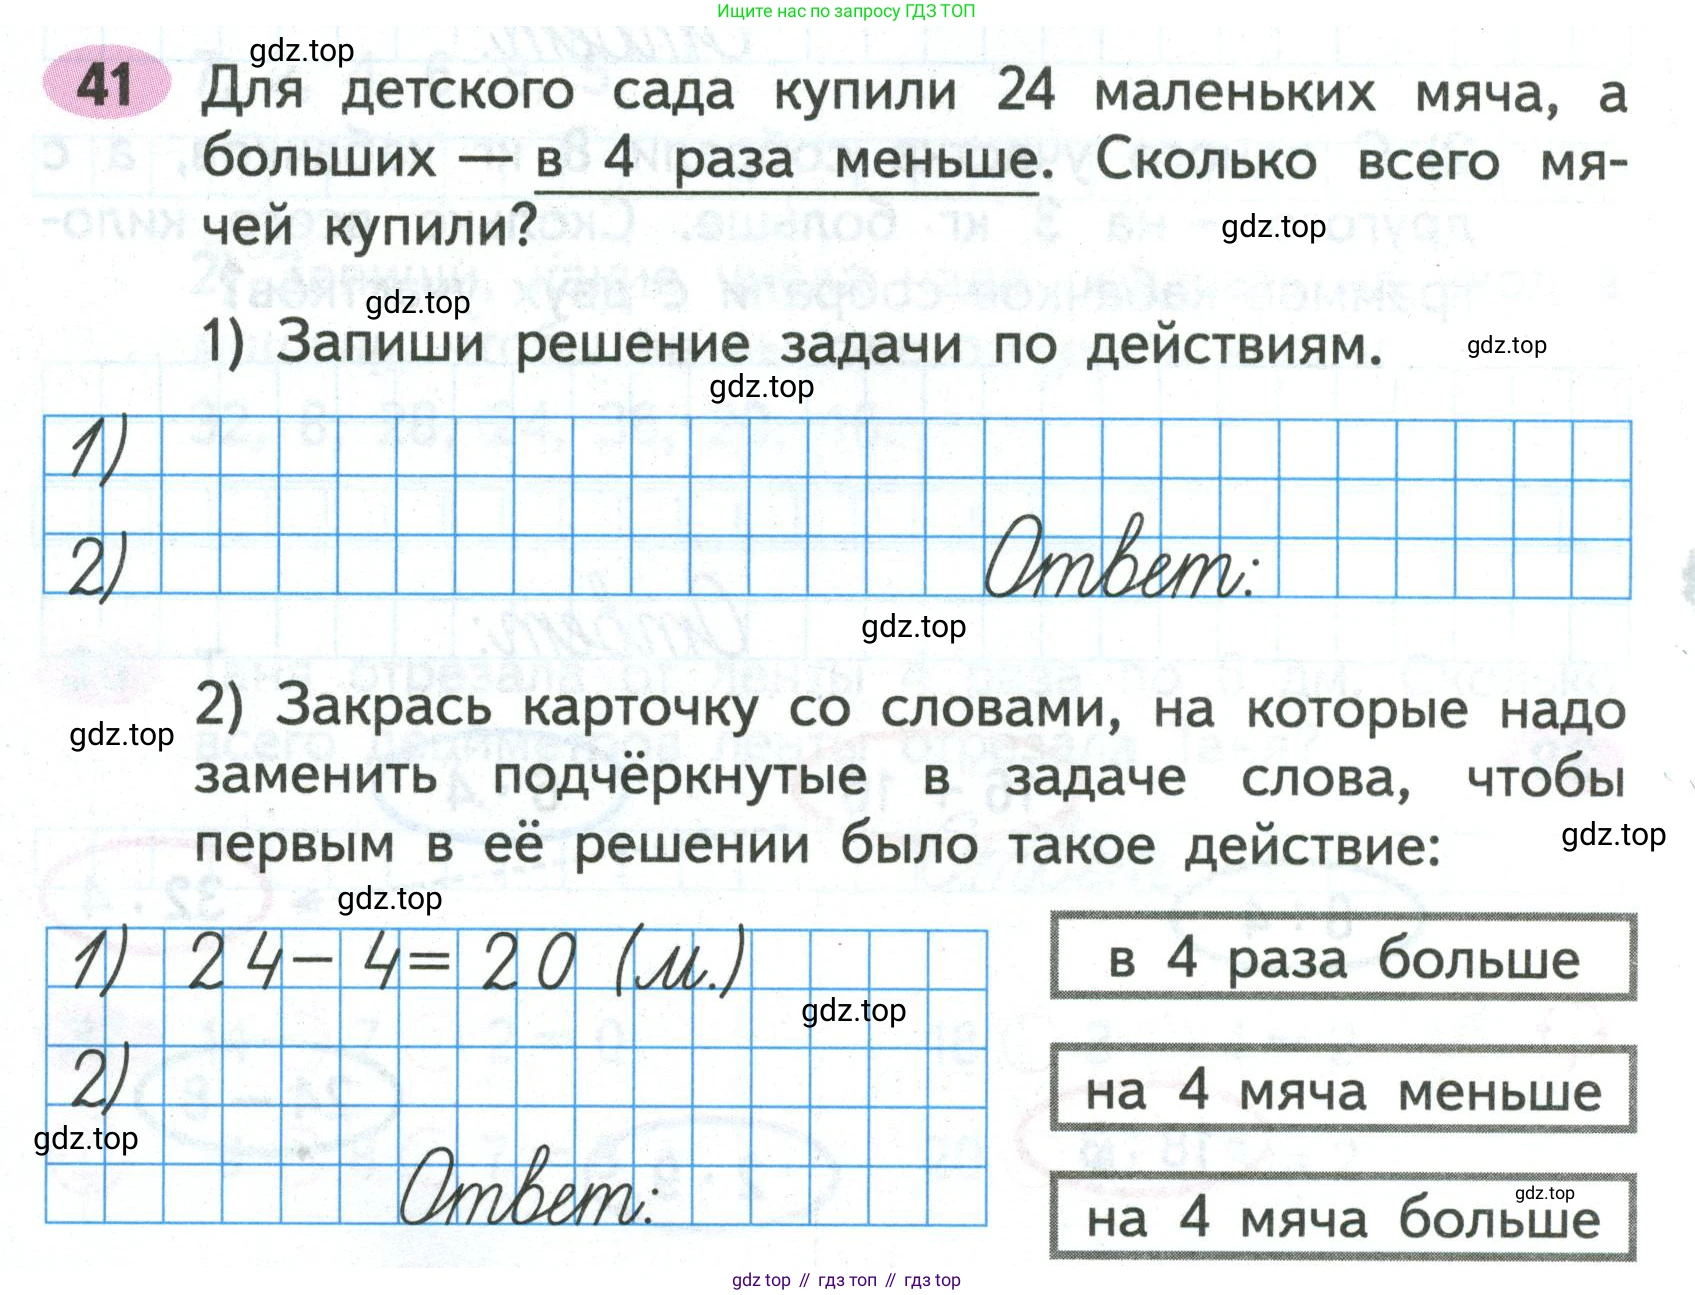 Ищите нас по запросу ГДЗ ТОП
gdz.top
41 Для детского сада купили 24 маленьких мяча, а
больших — в 4 раза меньше. Сколько всего мя-
чей купили?
gdz.top
gdz.top
1) Запиши решение задачи по действиям.
gdz.top
gdz.top
1)
2) Ответ:
gdz.top
2) Закрась карточку со словами, на которые надо
gdz.top
заменить подчёркнутые в задаче слова, чтобы
первым в её решении было такое действие:
gdz.top
gdz.top
1) 24 - 4 = 20 (м.)
в 4 раза больше
gdz.top
2)
на 4 мяча меньше
gdz.top
Ответ:
gdz.top
на 4 мяча больше
gdz top // гдз топ // гдз top